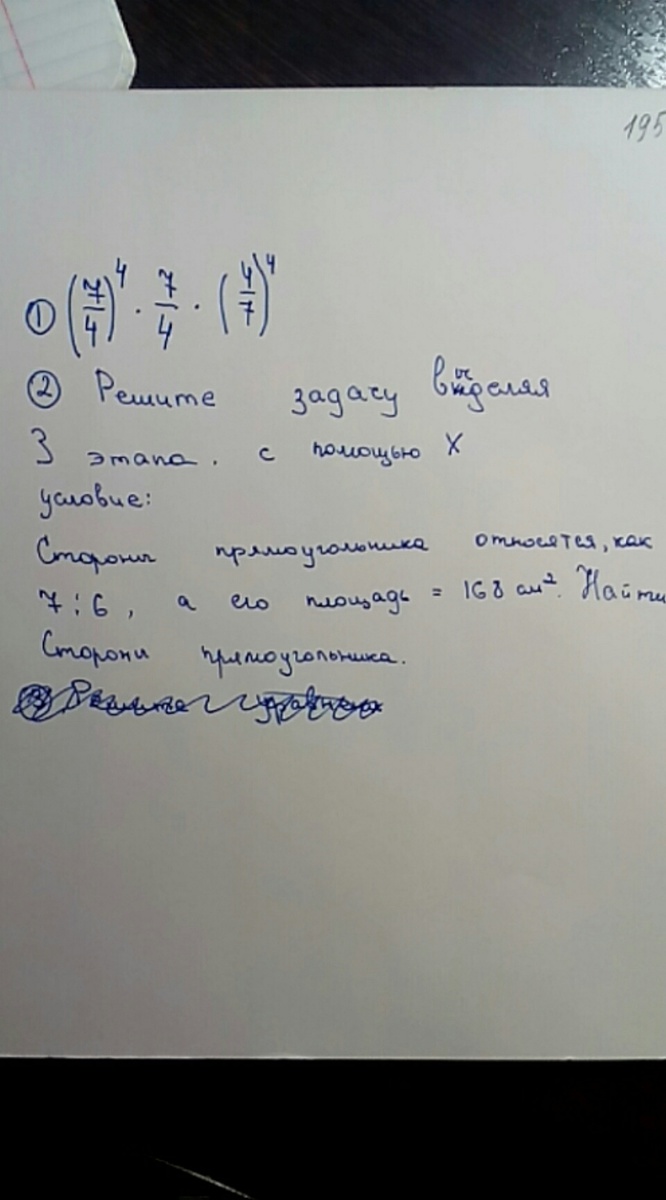 195
① (7/4)^4 · 7/4 · (4/7)^4
② Решите задачу выделяя
3 этапа. с помощью X
условие:
Стороны прямоугольника относятся, как
7:6, а его площадь = 168 см². Найти
Стороны прямоугольника.